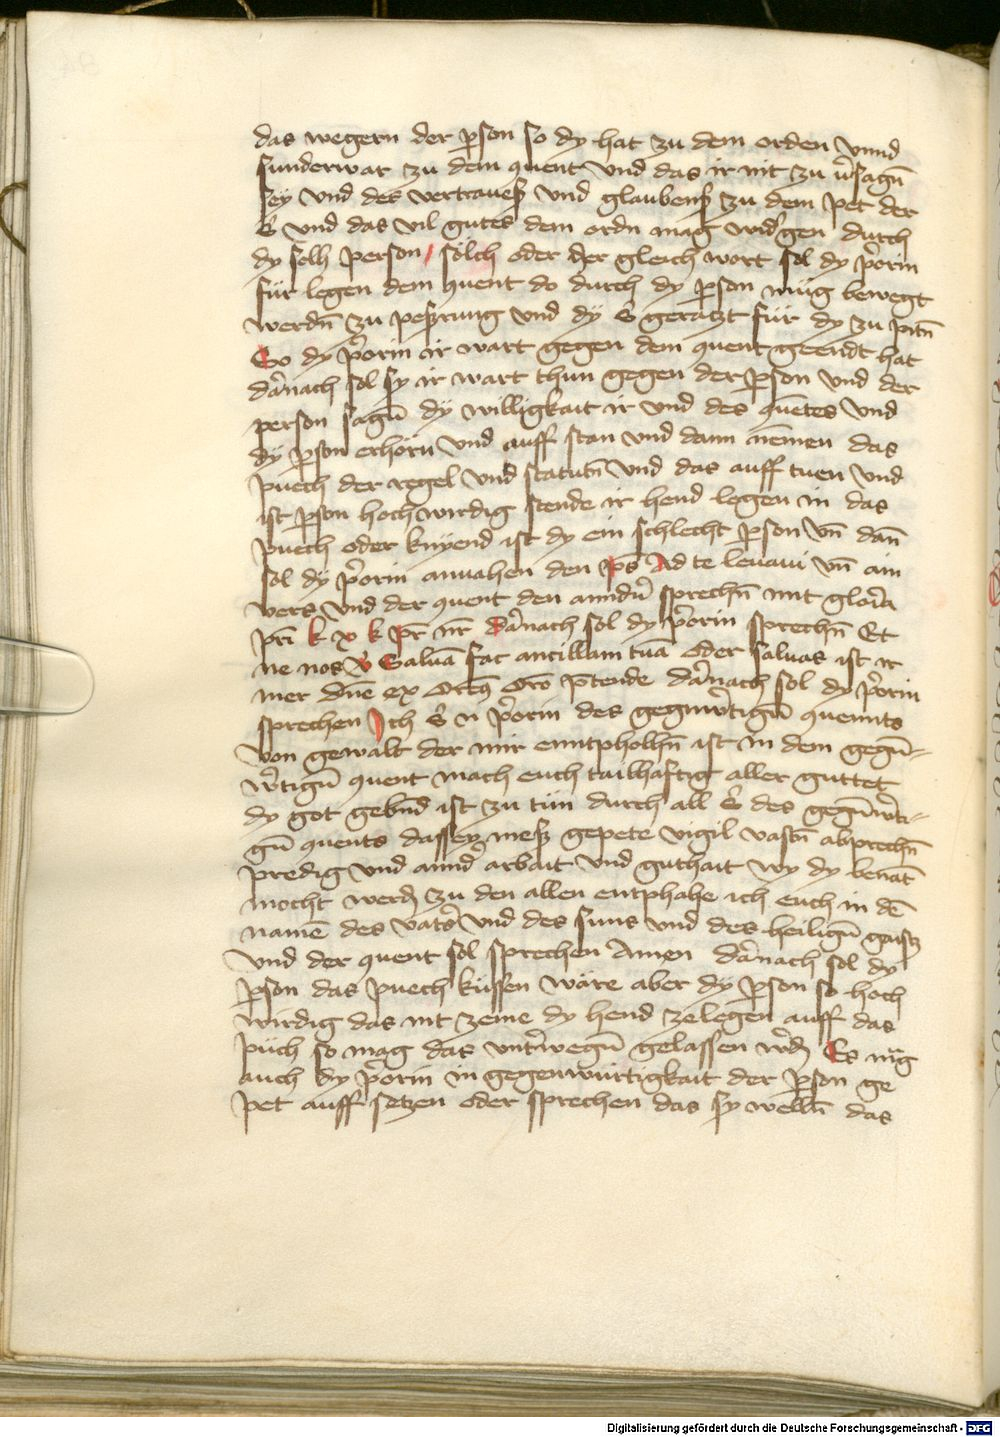 das wegern der pson so dy hat zu dem orden vnnd
sunderwar zu dem quent vnd das ir nit zu v̾sagn̄
sey vnd des vertrauens vnd glaubens zu dem pet der
S̄ vnd das vil gutes dem ordn mag wid'gen durch
dy solh person / sölch oder der gleich wort sol dy p̾orin
für legen dem quent do durch dy pson müg bewegt
werdn̄ zu pessrung vnd dy S̄ geratzt für dy zu pitn̄
So dy p̾orin ir wart gegen dem quent geendt hat
dar̾nach sol sy ir wart thun gegen der pson vnd der
person sagn̄ dy willigkait ir vnd des que̅tes vnd
dy pson erhörn vnd auff stan vnd dann nemen das
puech der regel vnd statutn̄ vnd das auff tuen vnd
ist pson hochwirdig stende ir hend legen in das
puech oder knyend ist dy ein schlecht pson vn̄ dan̄
sol dy p̾orin anuahen den ps̄ Ad te leuaui vn̄ ain
vers vnd der quent den annd'n̄ sprechn̄ mit gloria
pri k x k pr̄ nr̄ Dar̾nach sol dy p̾orin sprechn̄ Et
ne nos v̾ Saluā fac ancillam tuā oder saluas ist ir
mer dn̄e ex Orem̄ Oro p̄tende dar̾nach sol dy p̾orin
sprechen Ich S̄ n p̾orin des gegnw̾tign̄ quennts
von gewalt der mir enntpholhn̄ ist in dem gegn̄=
w̾tign̄ quent mach euch tailhaftig aller guttet
dy got gebnd ist zu tun durch all S̄ des gegn̄w̾ti=
gn̄ quents das sey mess gepete vigil vastn̄ abprechn̄
predig vnd annd' arbait vnd guthait wy dy benāt
mocht werdn̄ zu den allen entphahe ich euch in dē
namē des vat̾s vnd des suns vnd des heilign̄ gaistz
vnd der quent sol sprechen Amen dar̾nach sol dy
pson das puech küssen wäre aber dy pson so hoch
wirdig das nit zeme dy hend zelegen auff das
püch so mag das vnt̾wegn̄ gelassen w̾dn̄ Es mg
auch dy p̾orin in gegenwürtigkait der pson ge
pet auff setzen oder sprechen das sy welln̄ das
Digitalisierung gefördert durch die Deutsche Forschungsgemeinschaft - DFG